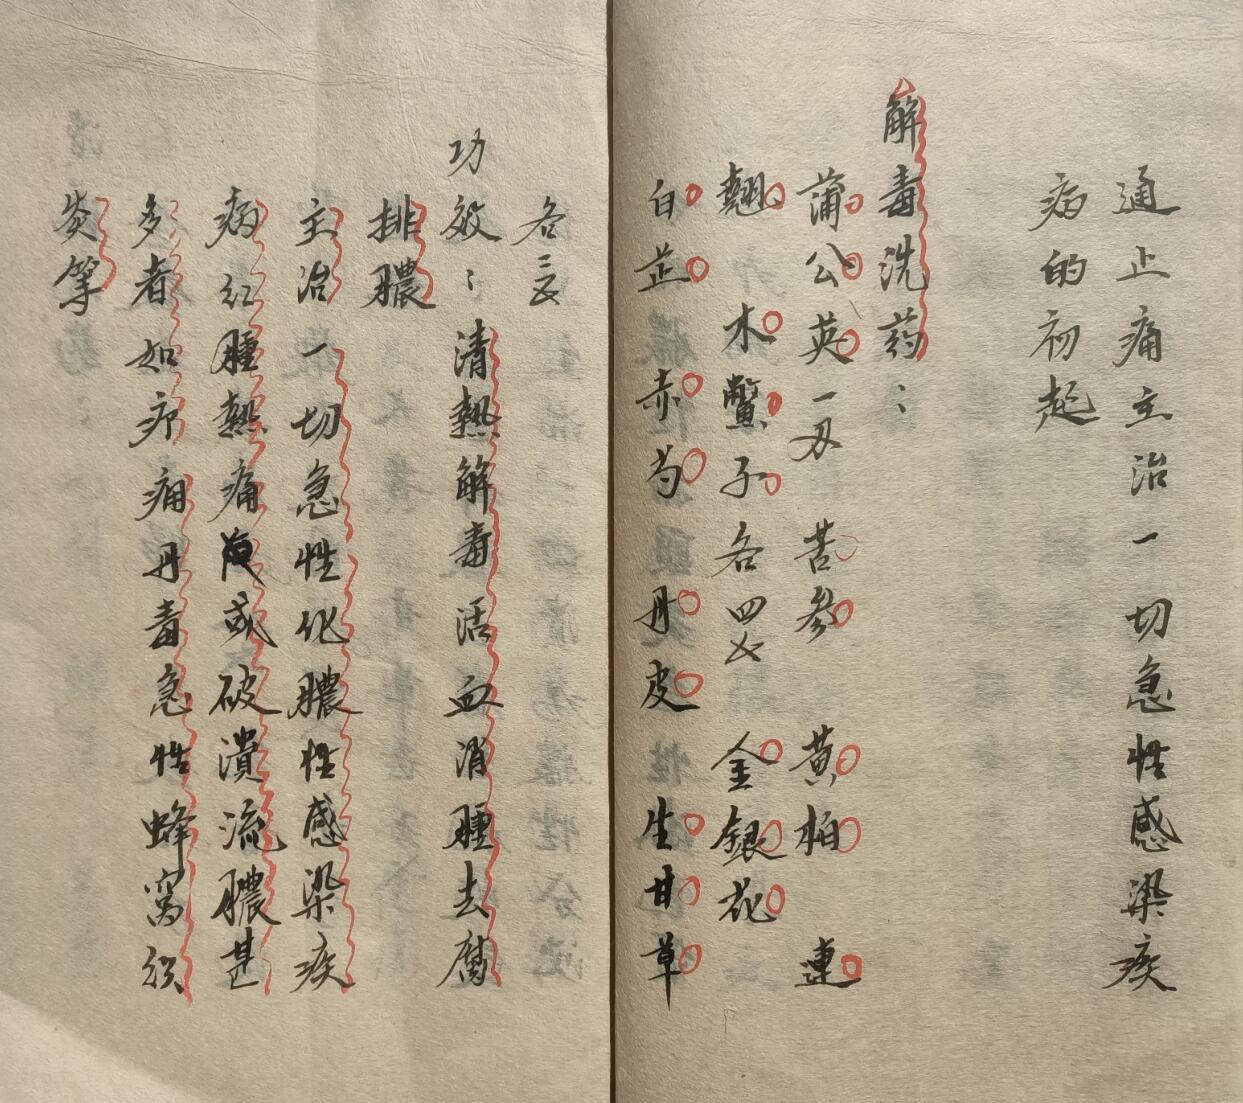 通止痛主治一切急性感染疾
病的初起
解毒洗药：
蒲公英一刄 苦参 黄柏 連
翘 木鳖子各四 金銀花
白芷 赤芍 丹皮 生甘草
各三
功效：清熱解毒活血消腫去腐
排膿
主治一切急性化膿性感染疾
病 红腫熱痛 或破潰流膿甚
多者如疖 痈丹毒急性蜂窝织
炎等